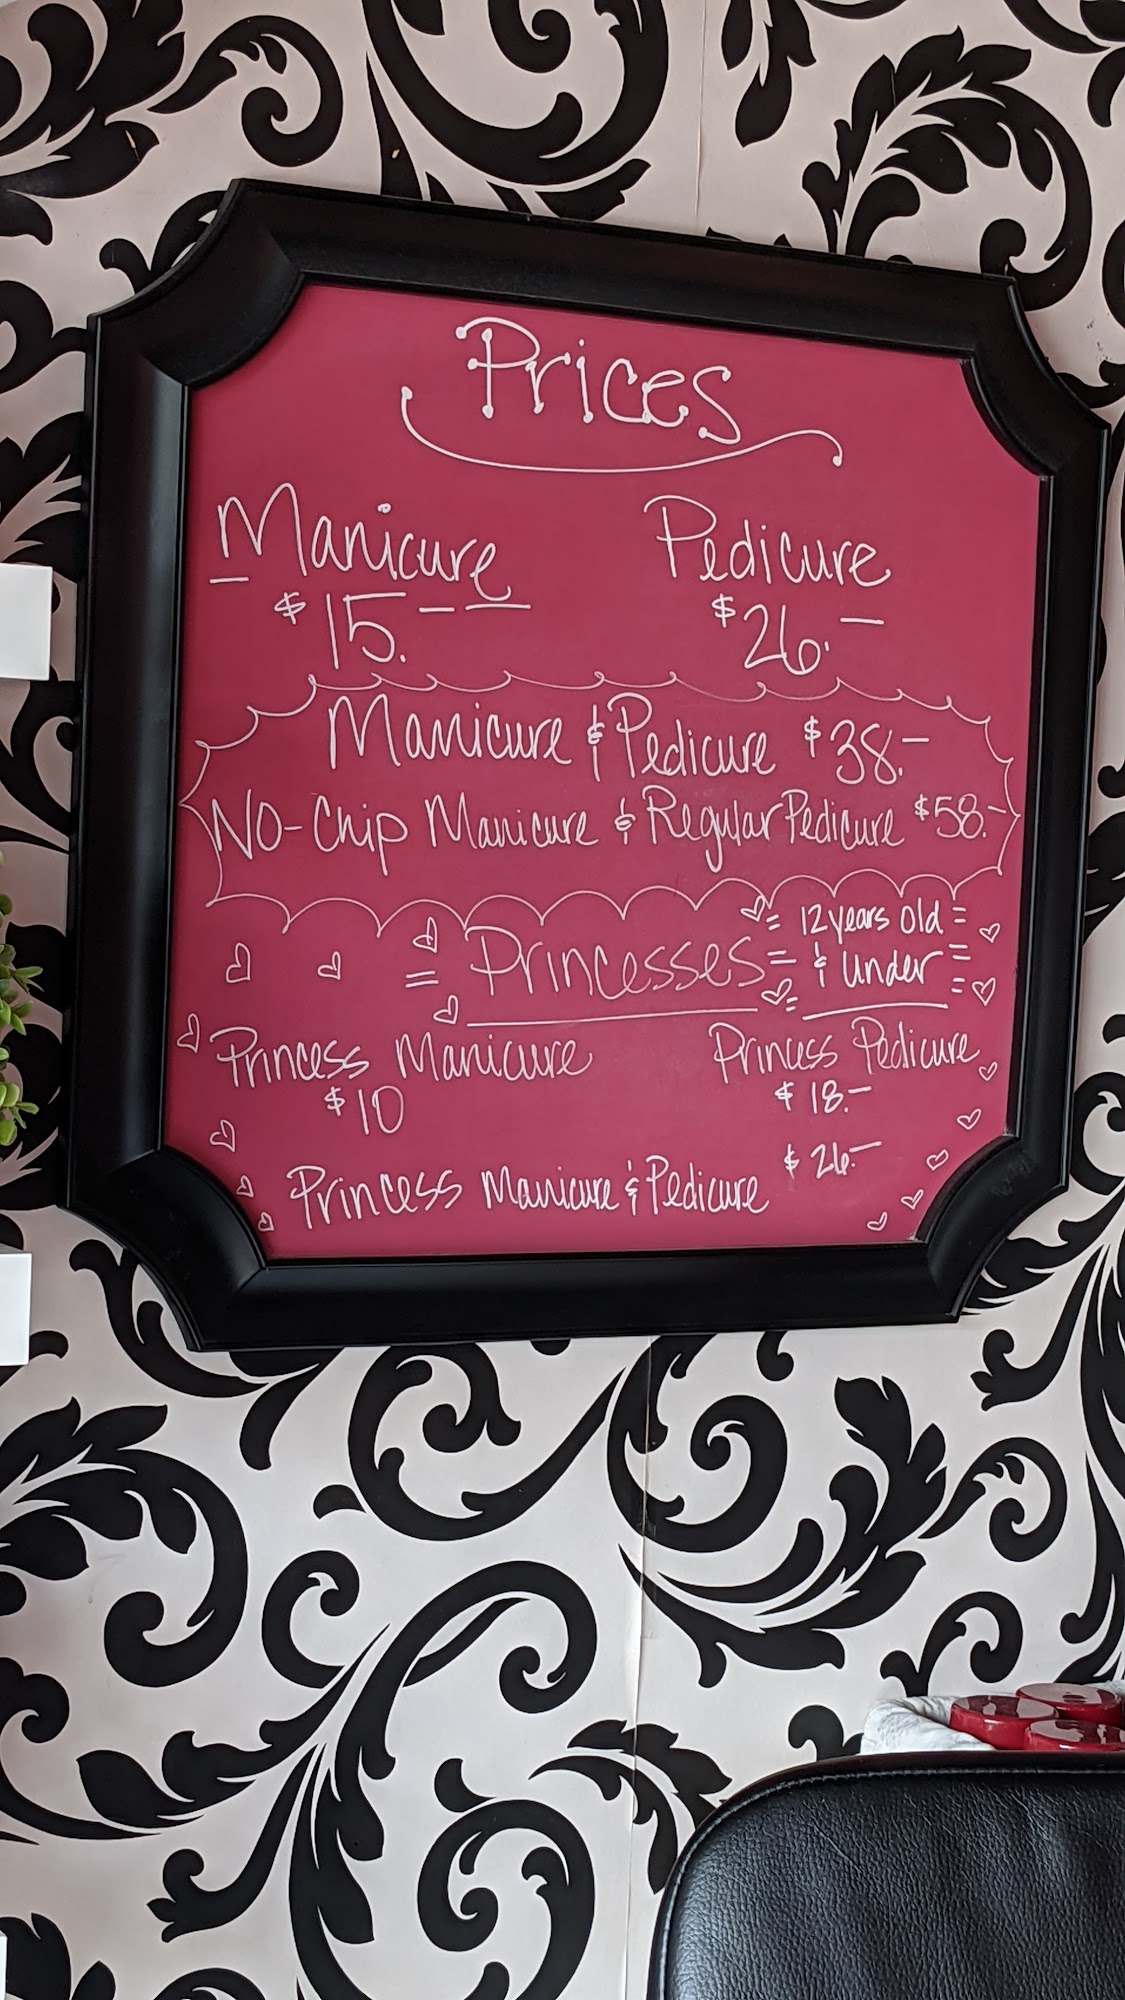 Prices
Manicure Pedicure
$15.- $26.-
Manicure & Pedicure $38.-
No-Chip Manicure & Regular Pedicure $58.-
= Princesses = = 12 years old =
& under =
Princess Manicure Princess Pedicure
$10 $18.-
Princess Manicure & Pedicure $26.-